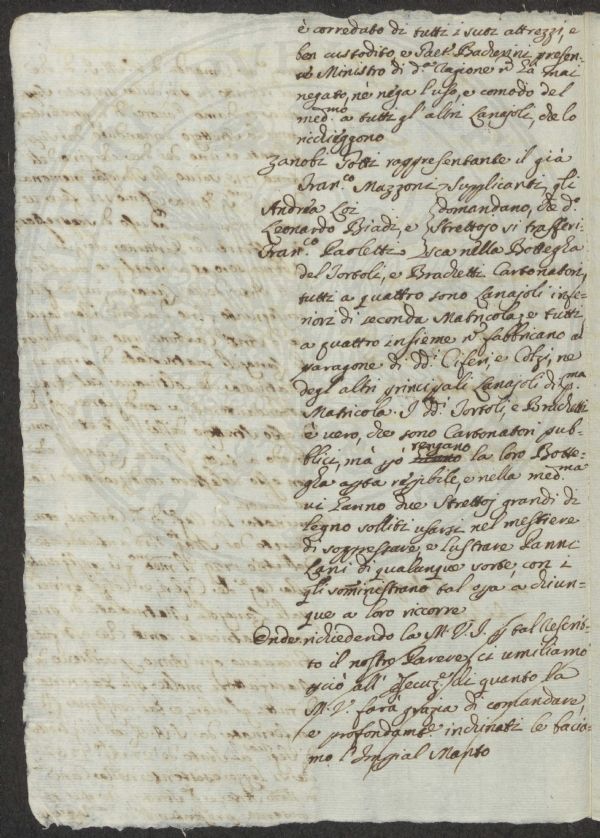 è corredato di tutti i suoi attrezzi, e
ben custodito, e Gaet.º Bacherini presen=
te Ministro di d.ª Ragione n.º hà mai
negato, nè nega l'uso, e comodo del
med.mo a tutti gl'altri Lanajoli, che lo
richieggono
Zanobi Totti rappresentante il già
Fran.co Mazzoni Supplicanti, gli
Andrea Loi domandano, che d.º
Leonardo Biadi, e Strettojo si trasferi
Fran.co Paoletti sca nella Bottegha
del Tortoli, e Brachetti Cartonatori,
tutti a quattro sono Lanajoli infe=
riori di seconda Matricola, e tutti
a quattro insieme n.º fabbricano a
paragone di dd. Ciferi, e Cozzi, ne
degl'altri principali Lanajoli di p.ma
Matricola. I dd. Tortoli, e Brachetti
è vero, che sono Cartonatori pub=
blici, mà tengano la loro Botte=
gha e nella med.ma
vi hanno due Strettoj grandi di
legno solliti usarsi nel mestiere
di soppressare, e lustrare Panni
Lani di qualunque sorte con i
q.li somministrano tal a chiun=
que a loro ricorre
Onde richiedendo la M. V. I. tal Rescrit=
to il nostro Parere ci umiliamo
all' di quanto la
M. V. farà grazia di comandare,
e profondam.te inchinati le bacia=
mo l'Imperial Manto